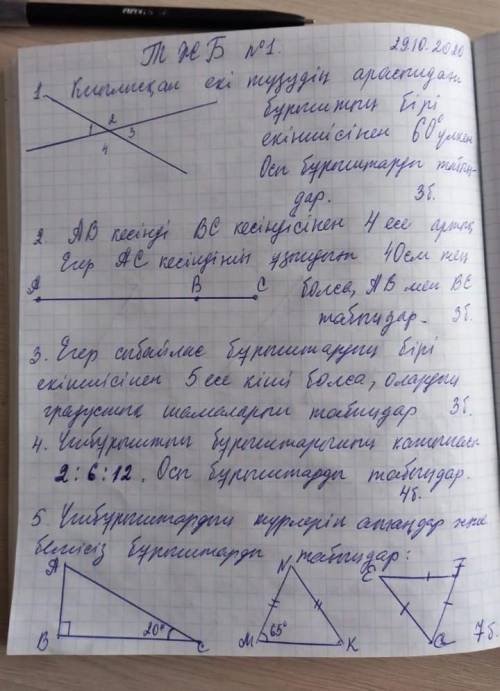 ТЖБ №1. 29.10.2020
1. Қиылысқан екі түзудің арасындағы
бұрыштың бірі
1 2 3 4
екіншісінен 60° үлкен
Осы бұрыштарды табың-
дар. 3б.
2. АВ кесінді ВС кесіндісінен 4 есе артық
Егер АС кесіндінің ұзындығы 40см тең
A B C
болса, АВ мен ВС
табыңдар. 3б.
3. Егер сыбайлас бұрыштардың бірі
екіншісінен 5 есе кіші болса, олардың
градустық шамаларын табыңдар 3б.
4. Үшбұрыштың бұрыштарының қатынасы
2:6:12. Осы бұрыштарды табыңдар.
4б.
5. Үшбұрыштардың түрлерін анықаңдар және
белгісіз бұрыштарды табыңдар:
A B C 20°
N M K 65°
E F
7б.